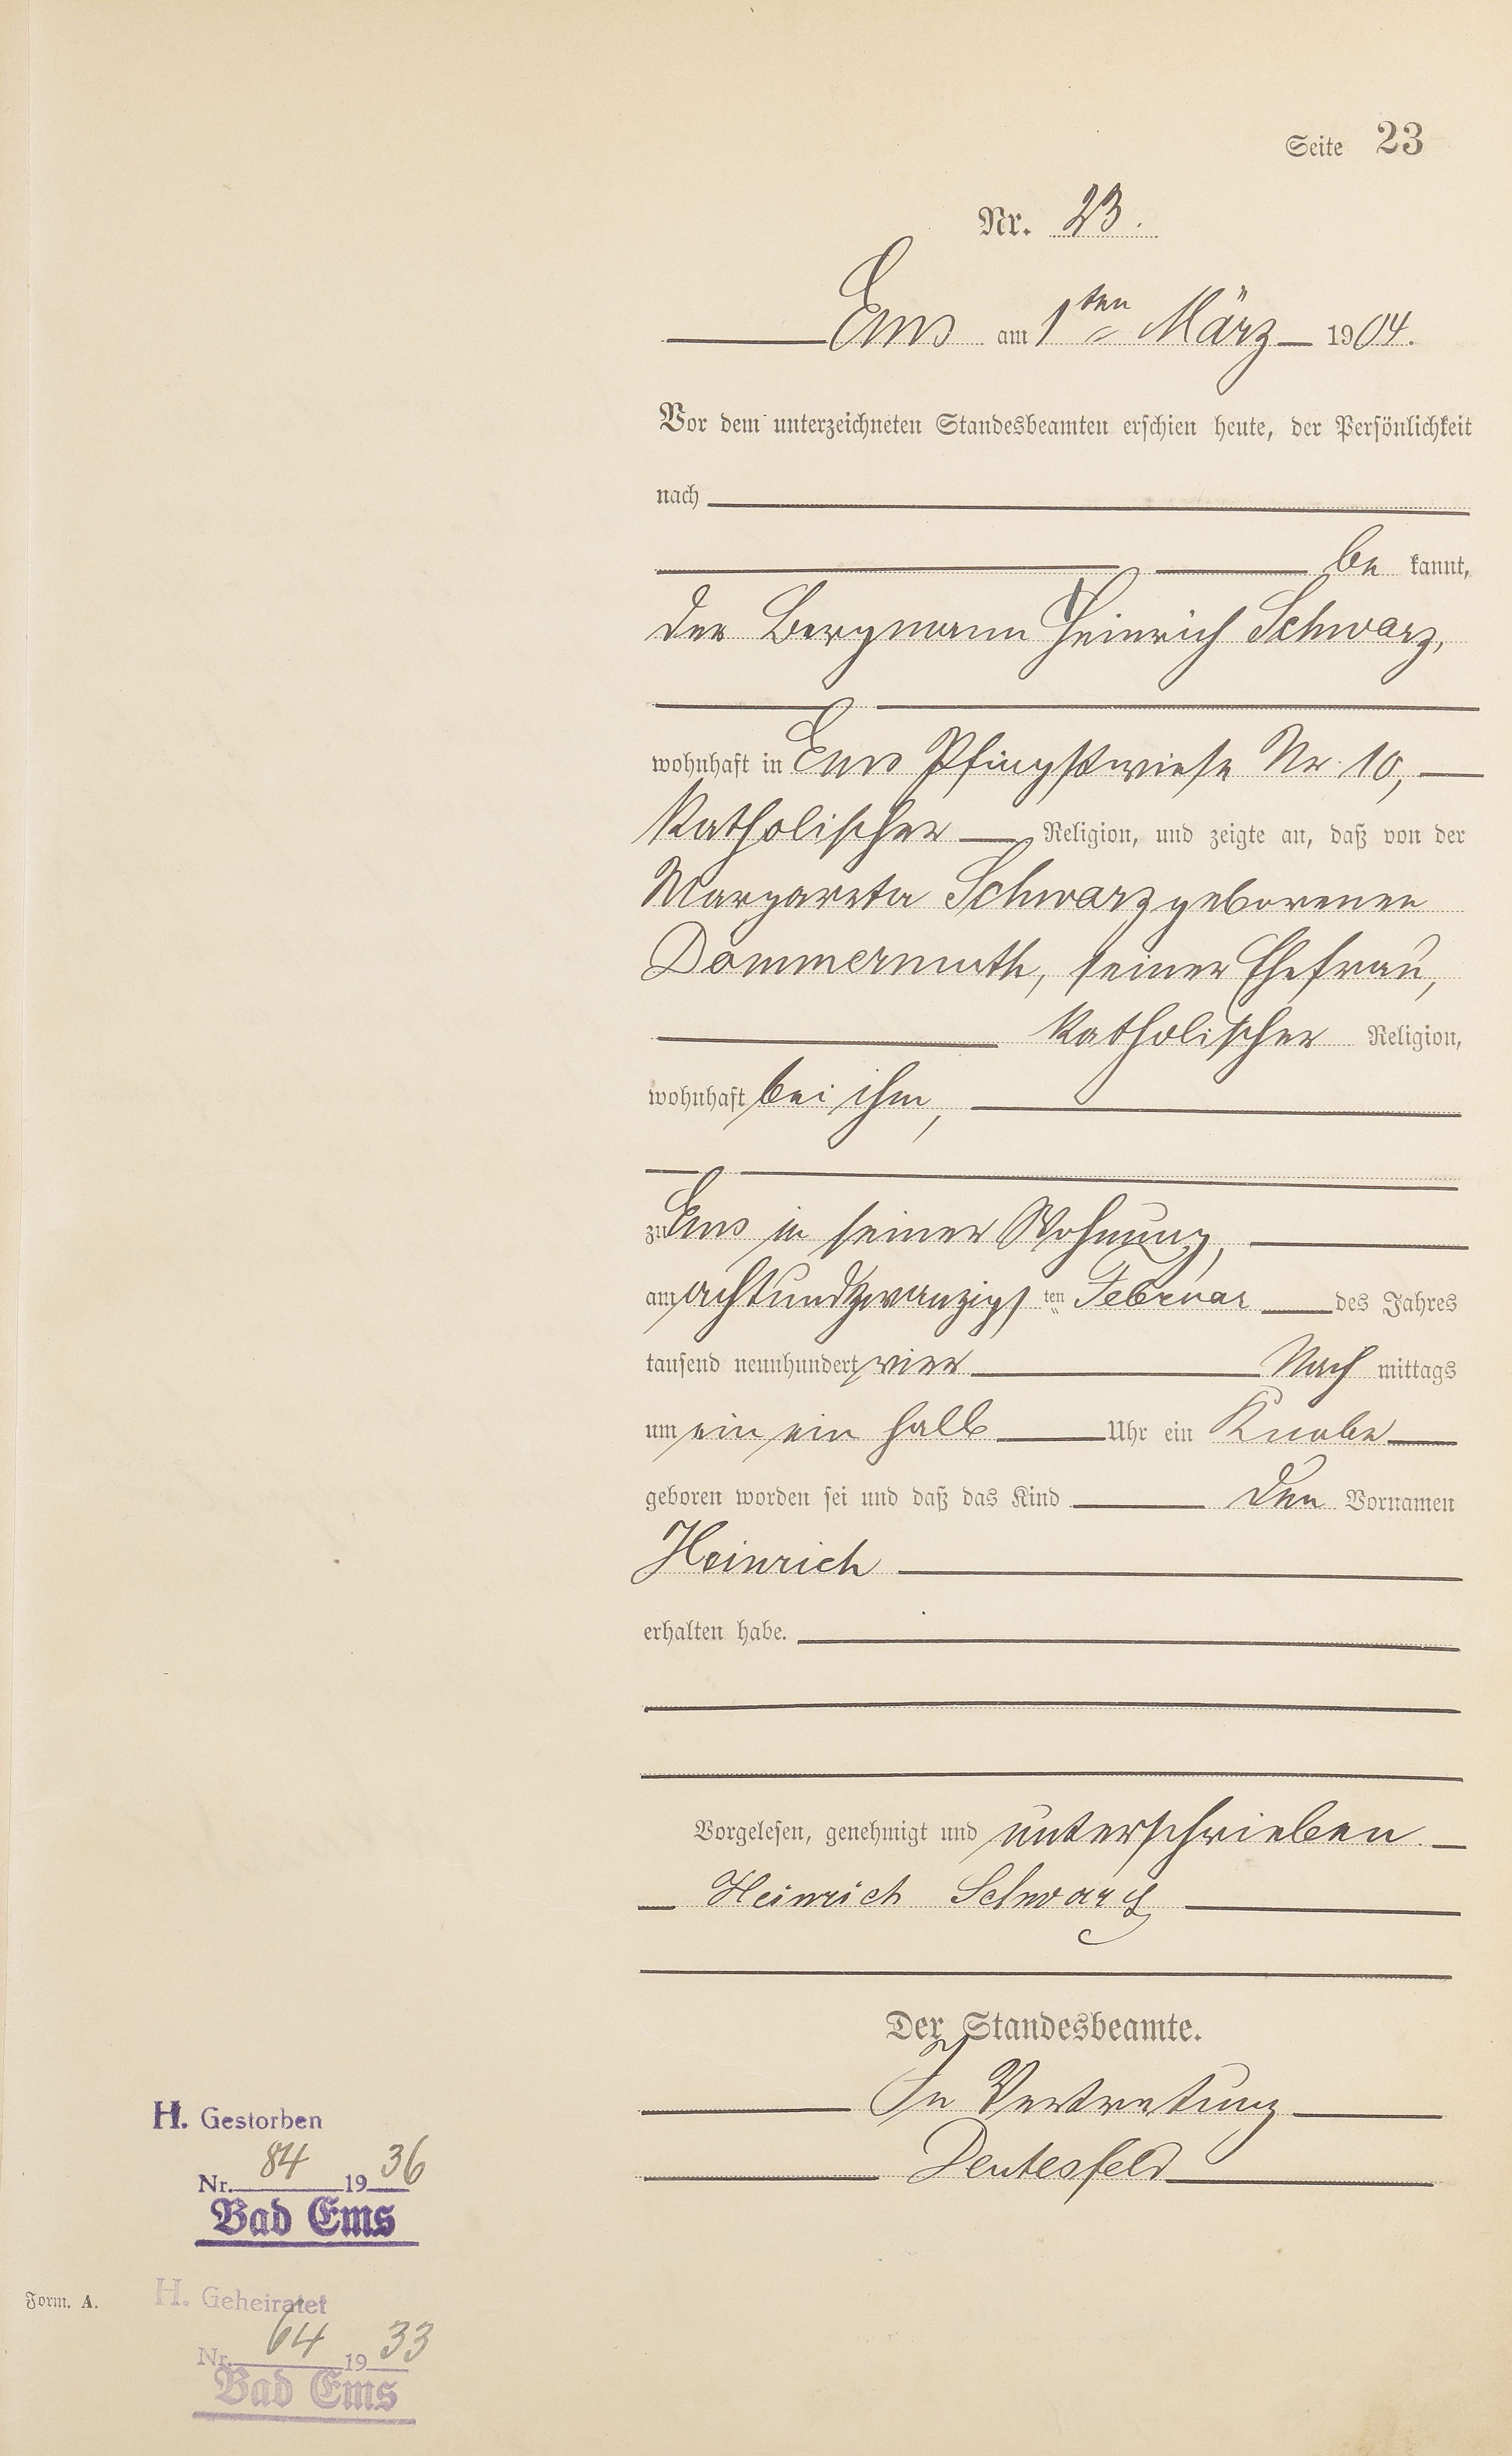 Seite 23
Nr. 23.
Ems am 1ten März 1904.
Vor dem unterzeichneten Standesbeamten erschien heute, der Persönlichkeit
nach
be kannt,
der Bergmann Heinrich Schwarz,
wohnhaft in Ems Pfingstwiese Nr. 10,
katholischer Religion, und zeigte an, daß von der
Margareta Schwarz geborenen
Dommermuth, seiner Ehefrau,
katholischer Religion,
wohnhaft bei ihm,
zu Ems in seiner Wohnung,
am achtundzwanzigsten Februar des Jahres
tausend neunhundert vier Nach mittags
um ein ein halb Uhr ein Knabe
geboren worden sei und daß das Kind den Vornamen
Heinrich
erhalten habe.
Vorgelesen, genehmigt und unterschrieben
Heinrich Schwarz
Der Standesbeamte.
In Vertretung
Deutesfeld
H. Gestorben
Nr. 84 1936
Bad Ems
Form. A.
H. Geheiratet
Nr. 64 1933
Bad Ems